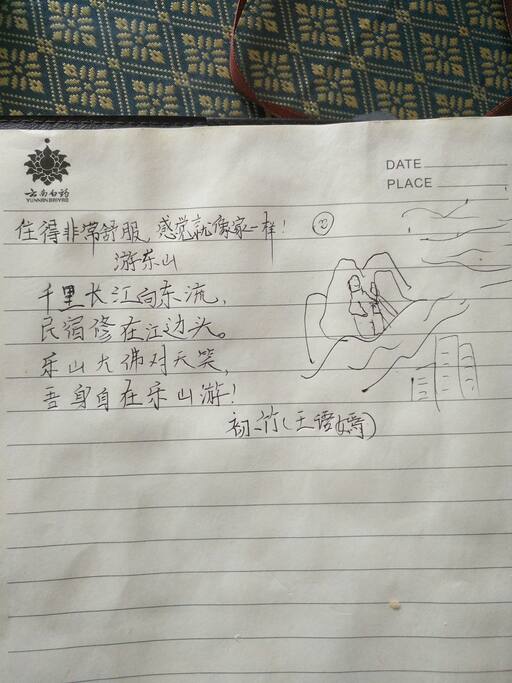 云南白药
YUNNAN BAIYAO
DATE
PLACE
住得非常舒服,感觉就像家一样!
游东山
千里长江向东流,
民宿修在江边头。
乐山大佛对天笑,
吾身自在乐山游!
初竹(王语嫣)